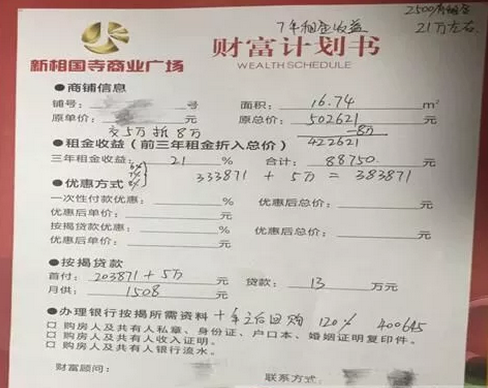 7年租金收益
2500有租金
21万左右
新相国寺商业广场
财富计划书
WEALTH SCHEDULE
●商铺信息
铺号： 号 面积：16.74 m²
原单价： 元 原总价：502621 元
交5万折8万 -8万
422621
●租金收益（前三年租金折入总价）
三年租金收益：21 % 合计：88750 元
6% 7% 8%
333871 + 5万 = 383871
●优惠方式
一次性付款优惠： % 优惠后总价： 元
优惠后单价： 元
按揭贷款优惠： % 优惠后总价： 元
优惠后单价： 元
●按揭贷款
首付：203871+5万 元 贷款：13 万元
月供：1508 元
●办理银行按揭所需资料 十年之后回购 120% 400645
□ 购房人及共有人私章、身份证、户口本、婚姻证明复印件。
□ 购房人及共有人收入证明。
□ 购房人及共有人银行流水。
财富顾问： 联系方式：